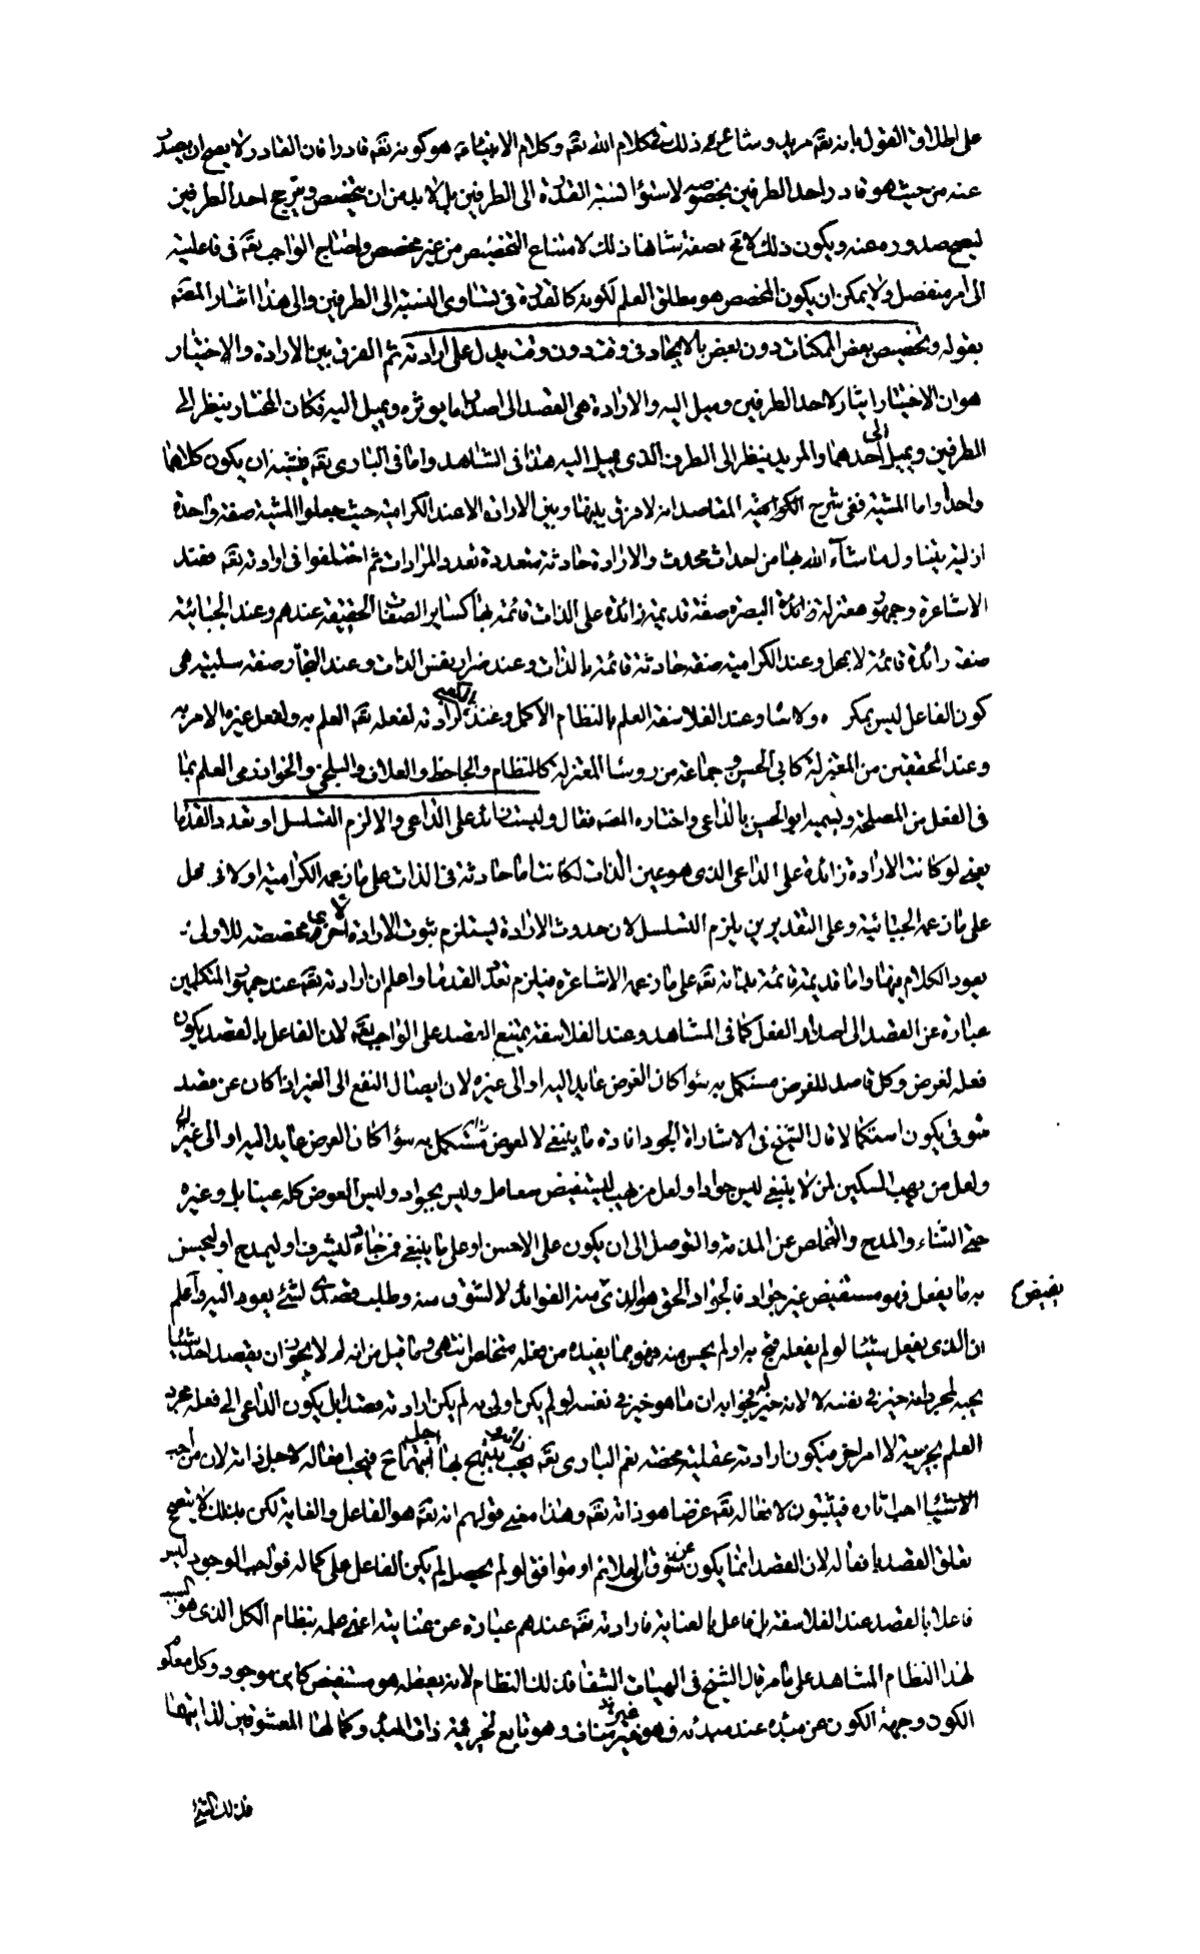 على اطلاق القول بانه تعه مريد وشاع ذلك في كلام الله تعه وكلام الانبياء عه هو كونه تعه قادرا فان القادر لا يصح ان يصدر
عنه من حيث هو قادر احد الطرفين بخصوصه لاستواء نسبة القدرة الى الطرفين بل لا بد من ان يتخصص ويترجح احد الطرفين
ليصح صدوره عنه ويكون ذلك لا مح بصفة شانها ذلك لامتناع التخصيص من غير مخصص واحتياج الواجب تعه في فاعليته
الى امر منفصل ولا يمكن ان يكون المخصص هو مطلق العلم لكونه كالقدرة في تساوى النسبة الى الطرفين والى هذا اشار المصنف
بقوله وتخصيص بعض الممكنات دون بعض بالايجاد في وقت دون وقت يدل على ارادته ثم الفرق بين الارادة والاختيار
هو ان الاختيار ايثار لاحد الطرفين وميل اليه والارادة هي القصد الى اصدار ما يوثره ويميل اليه فكان المختار ينظر الى
الطرفين ويميل الى احدهما والمريد ينظر الى الطرف الذى يميل اليه هذا في الشاهد واما في البارى تعه فيشبه ان يكون كلاهما
واحدا واما المشية ففي شرح المقاصد انه لا فرق بينها وبين الارادة الا عند الكرامية حيث جعلوا المشية صفة واحدة
ازلية يتناول ما شآء الله بها من احداث محدث والارادة حادثة متعددة تعدد المرادات ثم اختلفوا في ارادته تعه فعند
الاشاعرة وجمهور معتزلة البصره صفة قديمة زائدة على الذات قائمة بها كساير الصفات الحقيقية عندهم وعند الجبائية
صفة زائدة قائمة لا بمحل وعند الكرامية صفة حادثة قائمة بالذات وعند ضرار نفس الذات وعند النجار صفة سلبية هي
كون الفاعل ليس بمكره ولا ساه وعند الفلاسفة العلم بالنظام الاكمل وعند الكعبي ارادته لفعله تعه العلم به ولفعل غيره الامر به
وعند المحققين من المعتزلة كابى الحسين وجماعة من روسا المعتزلة كالنظام والجاحظ والعلاف والبلخى والخوارزمى العلم بما
في الفعل من المصلحة ويسميه ابو الحسين بالداعى واختاره المصه فقال وليست زائدة على الداعى والا لزم التسلسل او تعدد القدما
يعنى لو كانت الارادة زائدة على الداعى الذى هو عين الذات لكانت اما حادثة في الذات على ما زعمه الكرامية او لا في محل
على ما زعمه الجبائية وعلى التقديرين يلزم التسلسل لان حدوث الارادة يستلزم ثبوت الارادة اخرى مخصصة للاولى
يعود الكلام فيها واما قديمة قائمة بذاته تعه على ما زعمه الاشاعرة فيلزم تعدد القدما واعلم ان ارادته تعه عند جمهور المتكلمين
عبارة عن القصد الى اصدار الفعل كما في المشاهد وعند الفلاسفة يمتنع القصد على الواجب تعه لان الفاعل بالقصد يكون
فعله لغرض وكل قاصد للغرض مستكمل به سواء كان الغرض عايد اليه او الى غيره لان ايصال النفع الى الغير اذا كان عن قصد
شوقى يكون استكمالا قال الشيخ في الاشارات الجود افادة ما ينبغى لا لعوض مستكمل به سواء كان العوض عايدا اليه او الى غيره
ولعل من يهب السكين لمن لا ينبغى ليس جوادا ولعل من يهب ليستفيض معامل وليس بجواد وليس العوض كله عينا بل وغيره
حتى الثناء والمدح والتخلص عن المذمة والتوصل الى ان يكون على الاحسن او على ما ينبغى فمن جاد ليشرف او ليمدح او ليحسن
به ما يفعل فهو مستفيض غير جواد فالجواد الحق هو الذى منه الفوائد لا لشوق منه وطلب قصدى لشئ يعود اليه واعلم
يفيض
ان الذى يفعل شيئا لو لم يفعله قبح به او لم يحسن منه فهو بما يفيده من فعله متخلص انتهى وما قيل من انه لم لا يجوز ان يقصد احد شيئا
يحبه لمجرد انه خير في نفسه لا لانه خير له فجوابه ان ما هو خير في نفسه لو لم يكن اولى به لم يكن ارادته قصدا بل يكون الداعى الى فعله مجرد
العلم بخيريته لا امر اخر فيكون ارادته عقلية محضة نعم البارى تعه فيجب افعاله لاجل ذاته لان من احب
الاشياء احب اثاره فيثبتون لافعاله تعه غرضا هو ذاته تعه وهذا معنى قولهم انه تعه هو الفاعل والغاية لكن بذلك لا يتصح
تعلق القصد بافعاله لان القصد انما يكون عن شوق الى ملائم او موافق لو لم يحصل لم يكن الفاعل على كماله فواجب الوجود ليس
فاعلا بالقصد عند الفلاسفة بل فاعل بالعناية فارادته تعه عندهم عبارة عن عنايته اعنى علمه بنظام الكل الذى هو السبب
لهذا النظام المشاهد على ما مر قال الشيخ في الهيات الشفا فذلك النظام لانه يعقله هو مستفيض كاين موجود وكل معلوم
الكون وجهة الكون عن مبدئه عند مبدئه فهو غير مناف وهو تابع لخيرية ذات المبدء وكمالها المعشوقين لذاتيهما
فذلك الشئ